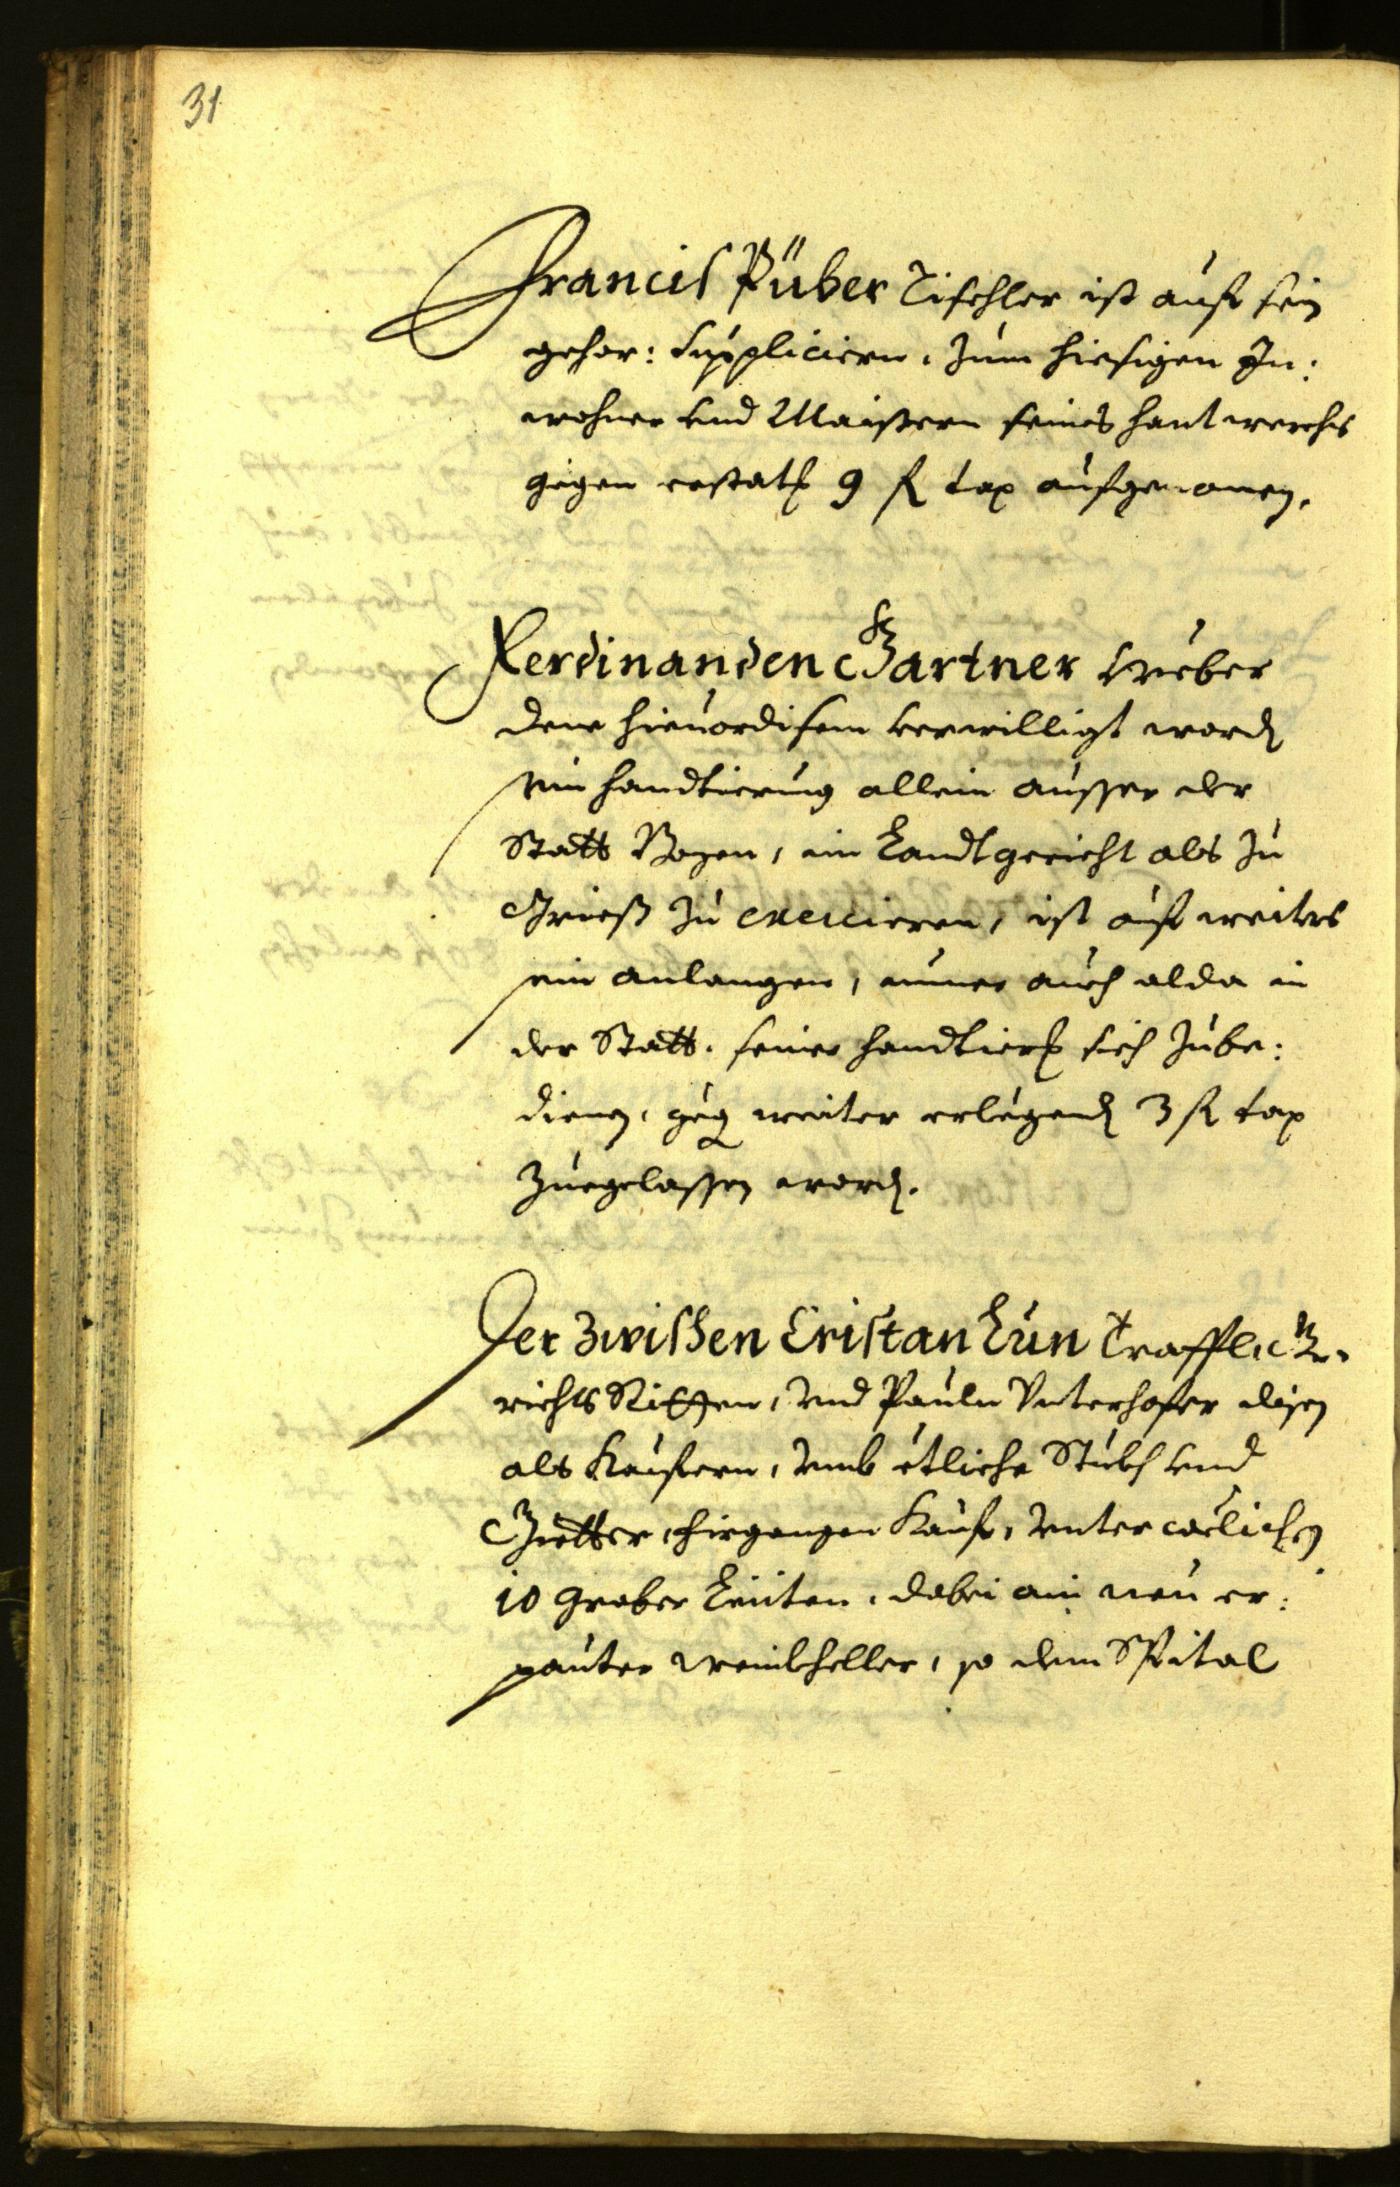 31
Francis Püber Tischler ist auf sein
gehor: Suppliciern, zum hiesigen In:
wohner und Maistern seines hantwerchs
gegen erstatt 9 fl tax aufgenomen.
Ferdinanden Gartner Weber
deme hieuor disem verwilligt word
sein handtierung allein ausser der
Statt Bozen, im Landtgericht als zu
Grieß zu exercieren, ist auf weiters
sein anlangen, nuner auch alda in
der Statt seiner handtier sich zube:
dienen, gegen weiter erlegend 3 fl tax
zuegelassen word.
Der zwischen Cristan Lun Ge:
richts Ritten, und Pauln Unterhofer disen
als Kaufern, umb etliche Stuckh und
Güetter, fürgangen Kauf, unter welichen
10 Graber Leiten, dabei ain neu er:
pauter Weinkheller, so dem Spital